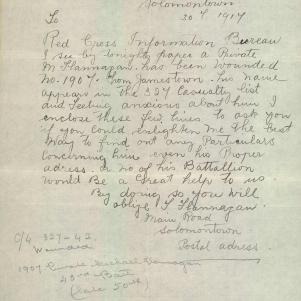 Solomontown
30 7 1917
To
Red Cross Information Bureau
I see by tonights paper a Private
M Flannagan. has been wounded
No. 1907. from Jamestown. his name
appears in the 327 Casualty list
and feeling anxious about him I
enclose these few lines to ask you
if you could enlighten me the best
way to find out any Particulars
concerning him even his Proper
adress. or no of his Battalion
would Be a Great help to us
By doing so you will
oblige T Flannagan.
Main Road
Solomontown
Postal adress.
C/L 327-42
Wounded
1907 Private Michael Flanagan
43rd Batt
(late 50th)